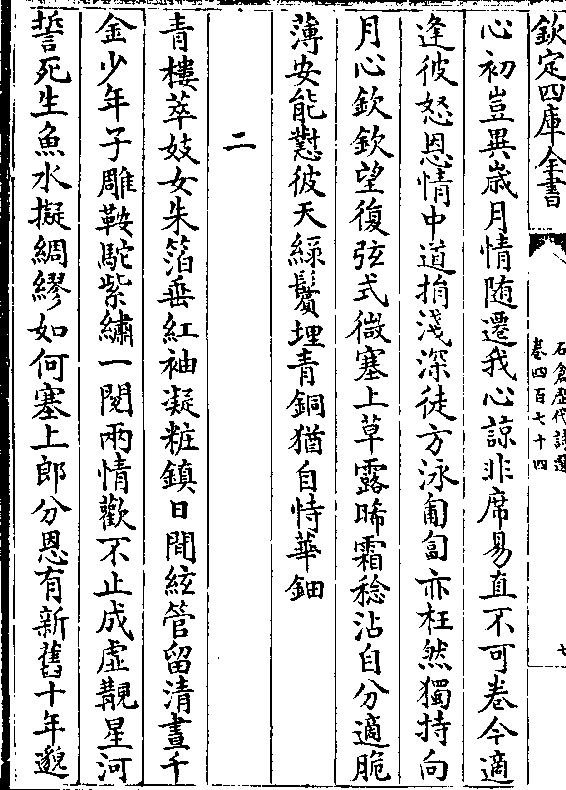 欽定四庫全書
石倉歷代詩選
卷四百七十四
七
心初豈異歲月情随遷我心諒非席易直不可卷今適
逢彼怒恩情中道捐淺深徒方泳匍匐亦枉然獨持向
月心欽欽望復弦式微塞上草露晞霜稔沾自分適脆
薄安能懟彼天緑鬢埋青銅猶自恃華鈿
二
青樓萃妓女朱箔垂紅袖凝粧鎮日間絃管留清晝千
金少年子雕鞍駝紫繡一閲兩情歡不止成虚覯星河
誓死生魚水擬綢繆如何塞上郎分恩有新舊十年邈